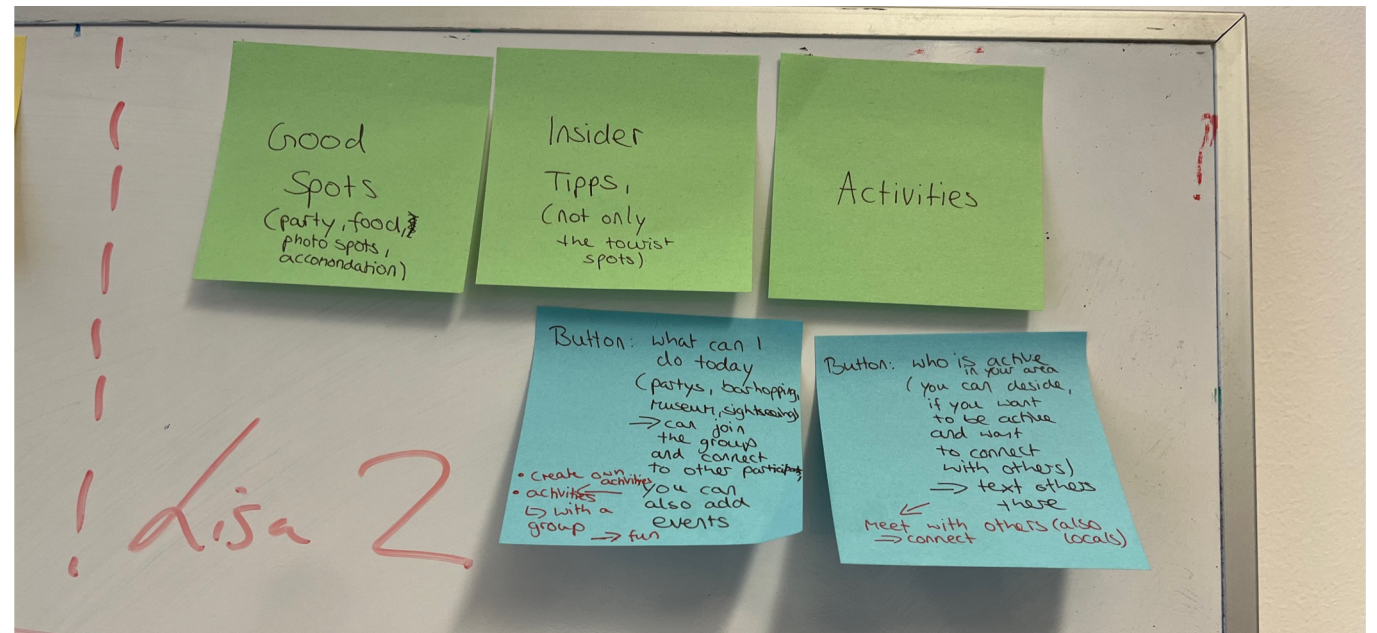 Good
Spots
(party, food,
photo spots,
accomondation)
Insider
Tipps,
(not only
the tourist
spots)
Activities
Button: what can I
do today
(partys, barhopping,
Museum, sightseeing)
⇒ can join
the group
and connect
to other participants,
you can
also add
events
• create own activities
• activities
↳ with a
group → fun
Button: who is active
in your area
(you can deside,
if you want
to be active
and want
to connect
with others)
⇒ text others
there
Meet with others (also
locals)
⇒ connect
Lisa 2